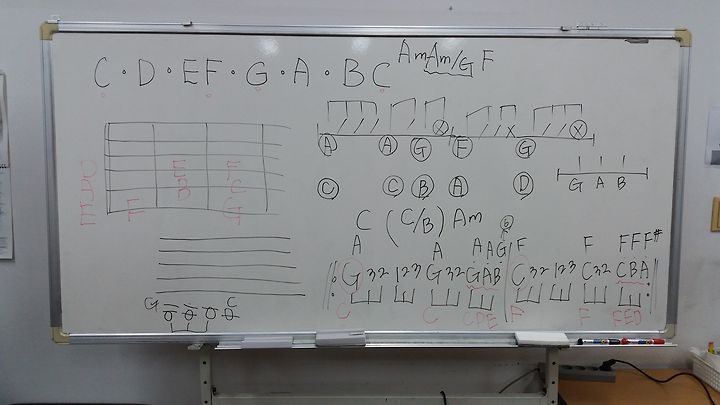 C · D · EF · G · A · BC
Am Am/G F
A A G F G
C C B A D
G A B
D E F
D B C
E F G
C (C/B) Am
6
A A AAG F F FFF#
G32 123 G32 GAB C32 123 C32 CBA
C C CDE F F FED
G C